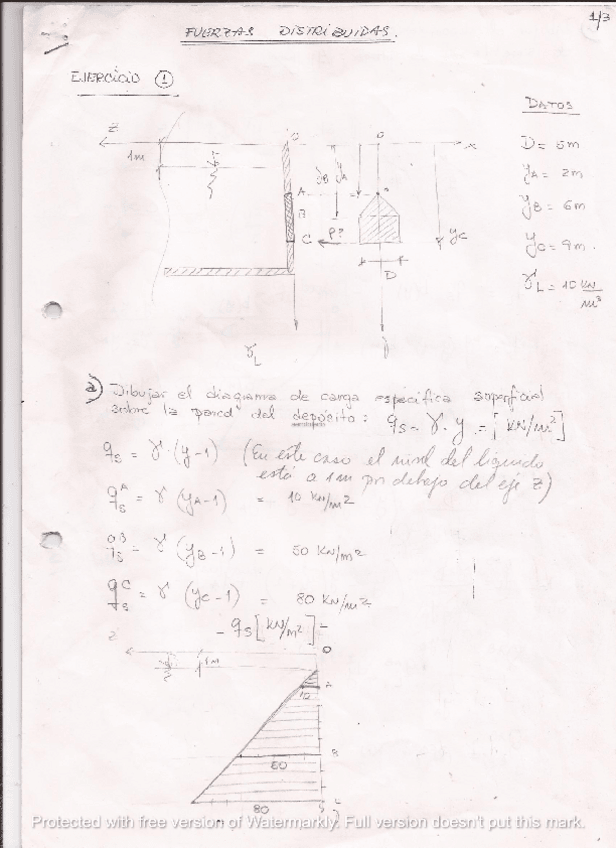 1/3
FUERZAS DISTRIBUIDAS.
EJERCICIO ①
DATOS
Z
1m
O
O
x
D = 5m
yA = 2m
yB = 6m
yC = 9m
γL = 10 KN/m³
yB yA
A
B
C
P?
yC
D
γL
a) Dibujar el diagrama de carga específica superficial
sobre la pared del depósito: qs = γ·y = [KN/m²]
qs = γ·(y-1) (En este caso el nivel del líquido
está a 1m por debajo del eje Z)
qsA = γ (yA-1) = 10 KN/m²
qsB = γ (yB-1) = 50 KN/m²
qsC = γ (yC-1) = 80 KN/m²
- qs [KN/m²]
Z
O
1m
A
10
B
80
Protected with free version of Watermarkly. Full version doesn't put this mark.